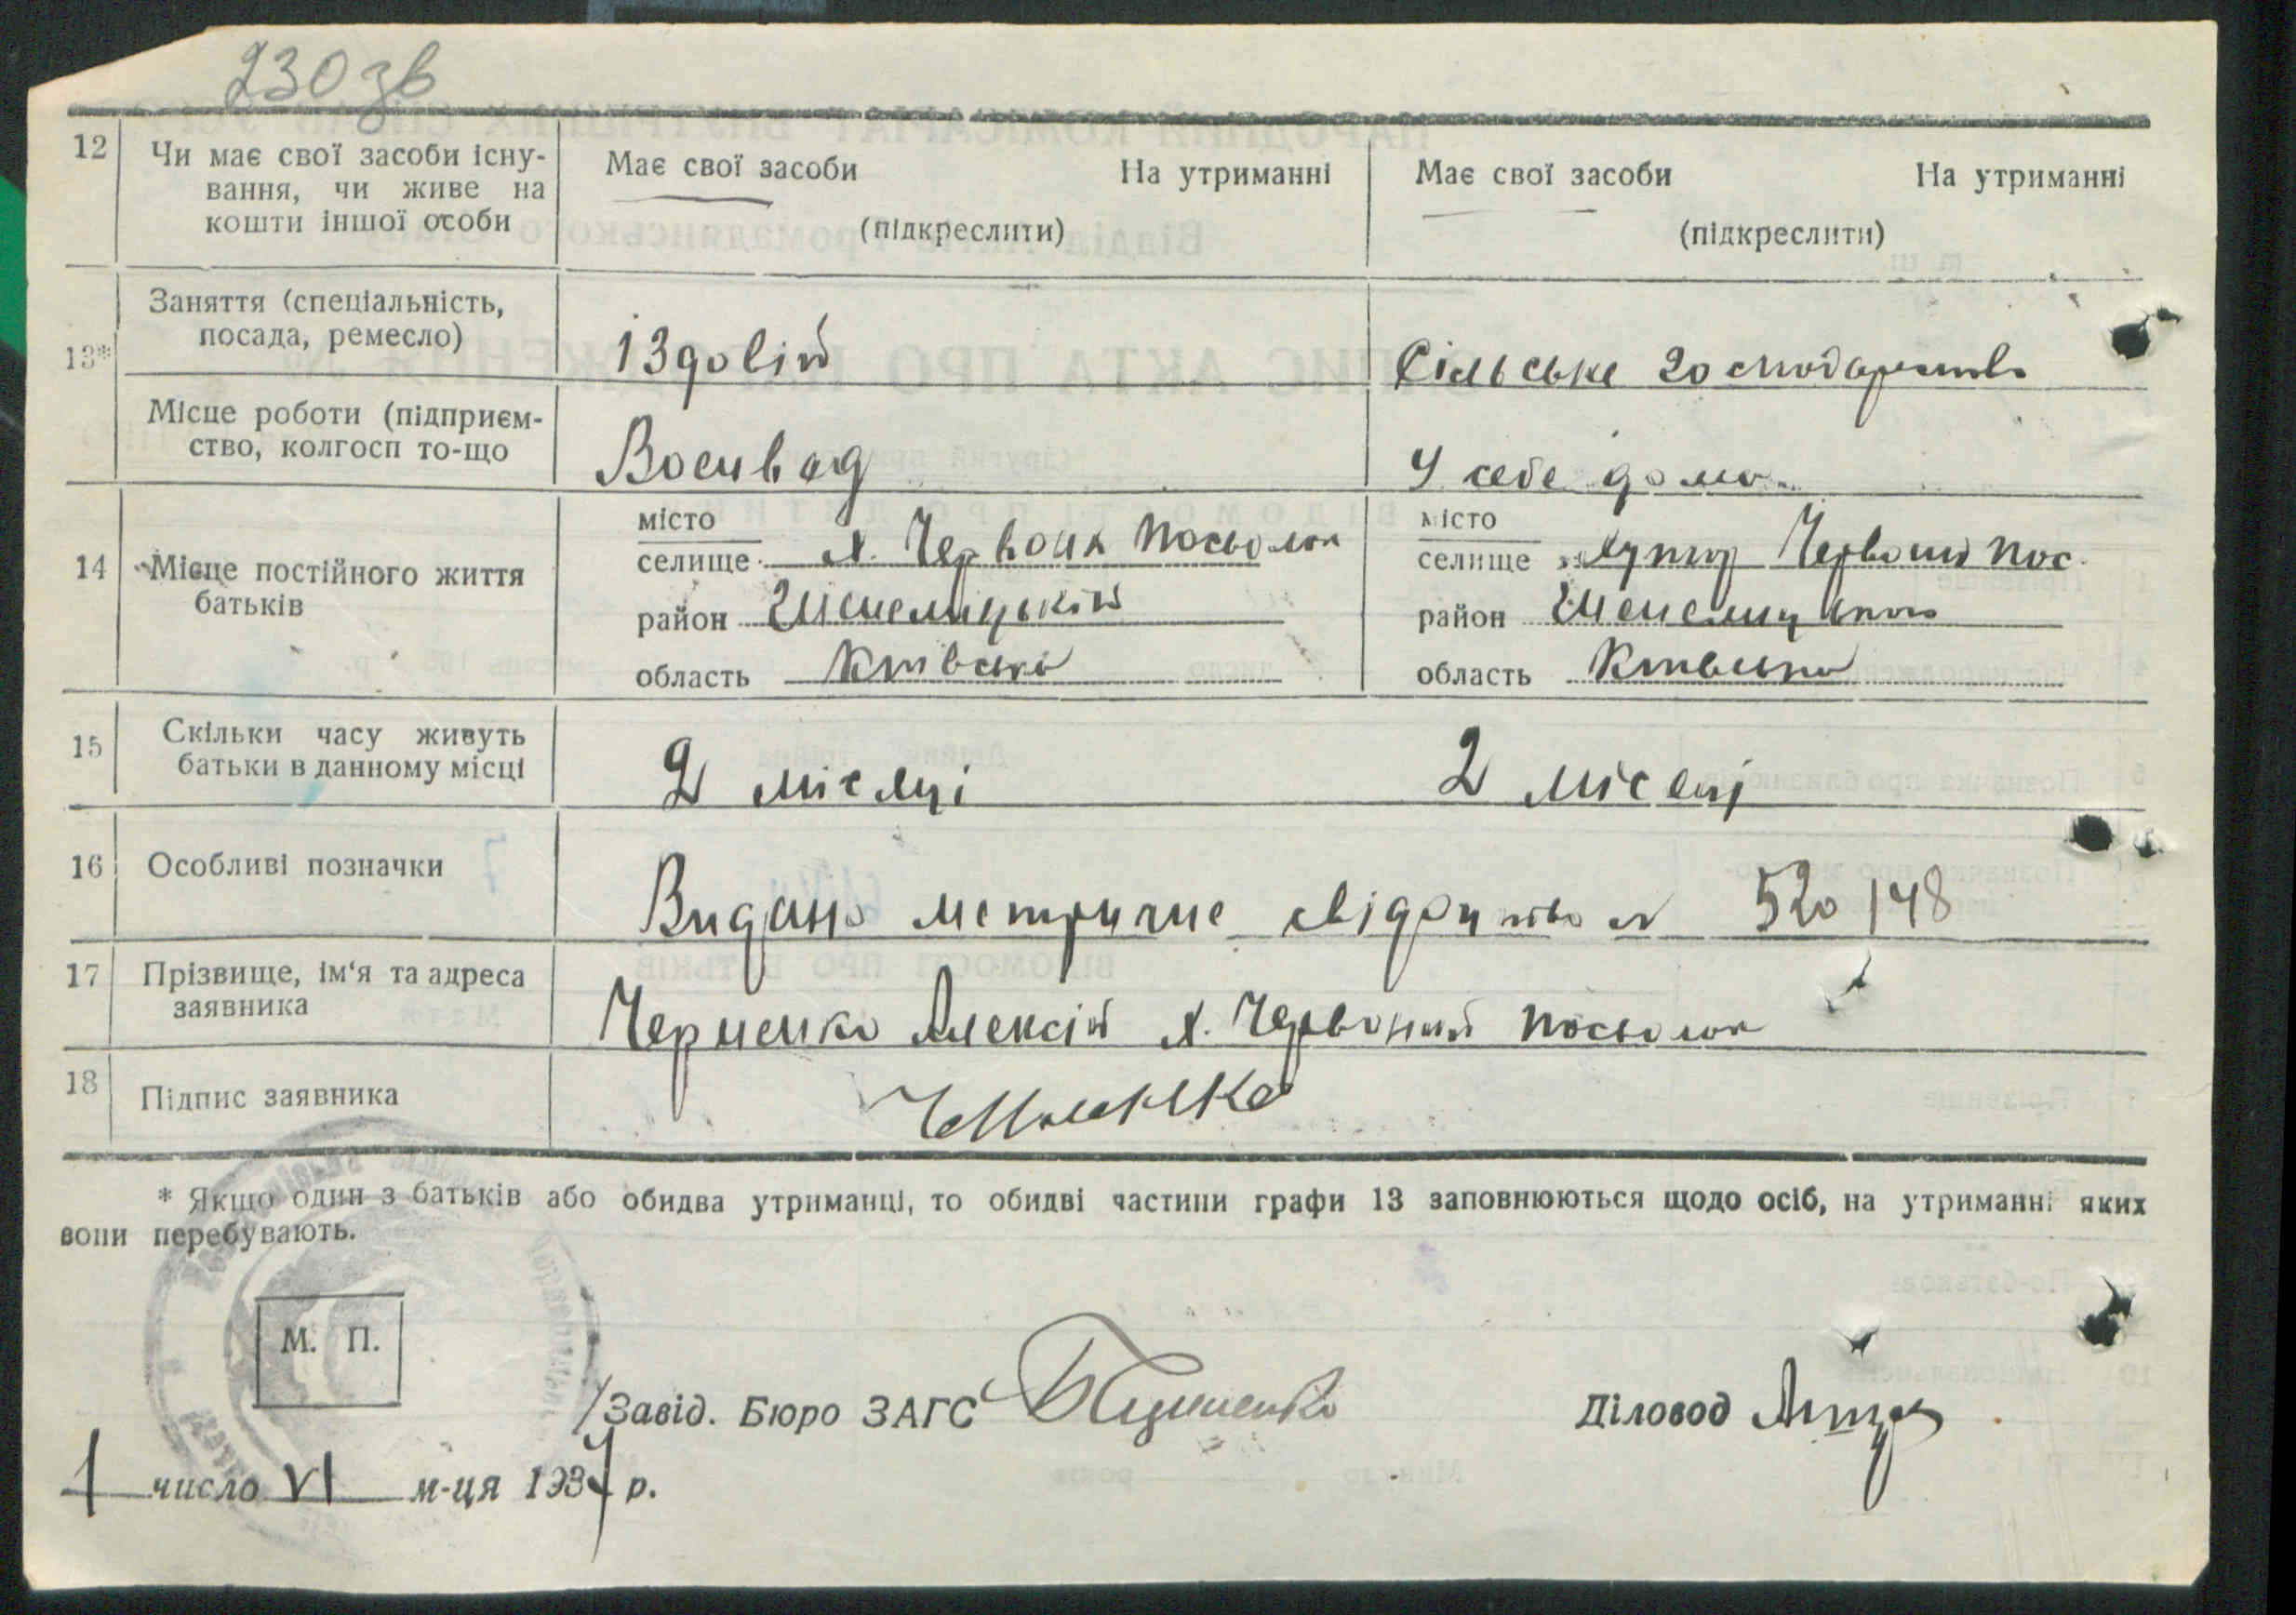 230 зв
12 Чи має свої засоби існу-
вання, чи живе на
кошти іншої особи
Має свої засоби На утриманні
(підкреслити)
Має свої засоби На утриманні
(підкреслити)
13*
Заняття (спеціальність,
посада, ремесло)
їздовій
Сільське господарство
Місце роботи (підприєм-
ство, колгосп то-що
Военвед
У себе дома
14 Місце постійного життя
батьків
місто
селище х. Червон Посьолок
район
область Київська
місто
селище хутір Червоний Пос.
район
область Київська
15 Скільки часу живуть
батьки в данному місці
2 місяці
2 місяці
16 Особливі позначки
Видано метричне свідоцтво № 520148
17 Прізвище, ім‘я та адреса
заявника
Черненко Алексій х. Червоний Посьолок
18 Підпис заявника
* Якщо один з батьків або обидва утриманці, то обидві частини графи 13 заповнюються щодо осіб, на утриманні яких
вони перебувають.
М. П.
Завід. Бюро ЗАГС
Діловод
1 число VI м-ця 1937 р.